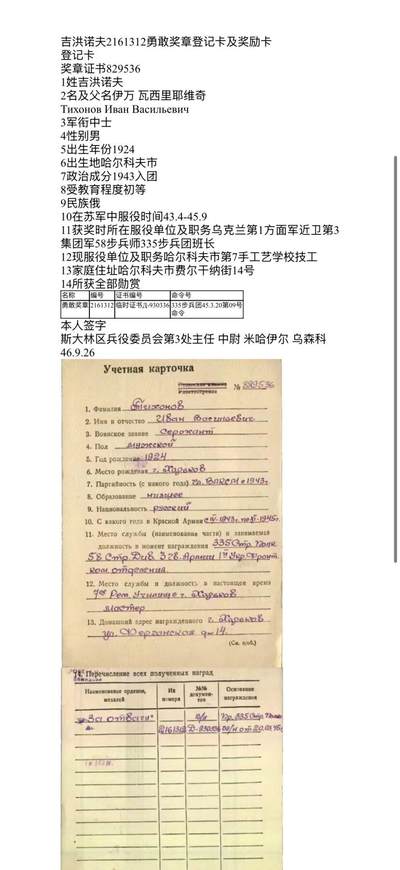 吉洪诺夫2161312勇敢奖章登记卡及奖励卡
登记卡
奖章证书829536
1姓吉洪诺夫
2名及父名伊万 瓦西里耶维奇
Тихонов Иван Васильевич
3军衔中士
4性别男
5出生年份1924
6出生地哈尔科夫市
7政治成分1943入团
8受教育程度初等
9民族俄
10在苏军中服役时间43.4-45.9
11获奖时所在服役单位及职务乌克兰第1方面军近卫第3
集团军58步兵师335步兵团班长
12现服役单位及职务哈尔科夫市第7手工艺学校技工
13家庭住址哈尔科夫市费尔干纳街14号
14所获全部勋赏
名称 编号 证书编号 命令号
勇敢奖章 2161312 临时证书Д-930336 335步兵团45.3.20第09号
命令
本人签字
斯大林区兵役委员会第3处主任 中尉 米哈伊尔 乌森科
46.9.26
Учетная карточка
№ 829536
1. Фамилия Тихонов
2. Имя и отчество Иван Васильевич
3. Воинское звание Сержант
4. Пол мужской
5. Год рождения 1924
6. Место рождения г. Харьков
7. Партийность (с какого года) ВЛКСМ с 1943г.
8. Образование низшее
9. Национальность русский
10. С какого года в Красной Армии с IV-1943г. по IX-1945г.
11. Место службы (наименование части) и занимаемая
должность в момент награждения 335 Стр. Полк
58 Стр. Див. 3 гв. Армии 1й Укр. Фронт
ком. отделения
12. Место службы и должность в настоящее время
7ое Рем. Училище г. Харьков
мастер
13. Домашний адрес награжденного г. Харьков
ул. Ферганская д. 14.
(См. н/об.)
14. Перечисление всех полученных наград
Наименование орденов, медалей Их номера №№ документов Основание награждения
"За отвагу" в/у Пр. 335 Стр. Полка
2161312 Д-930336